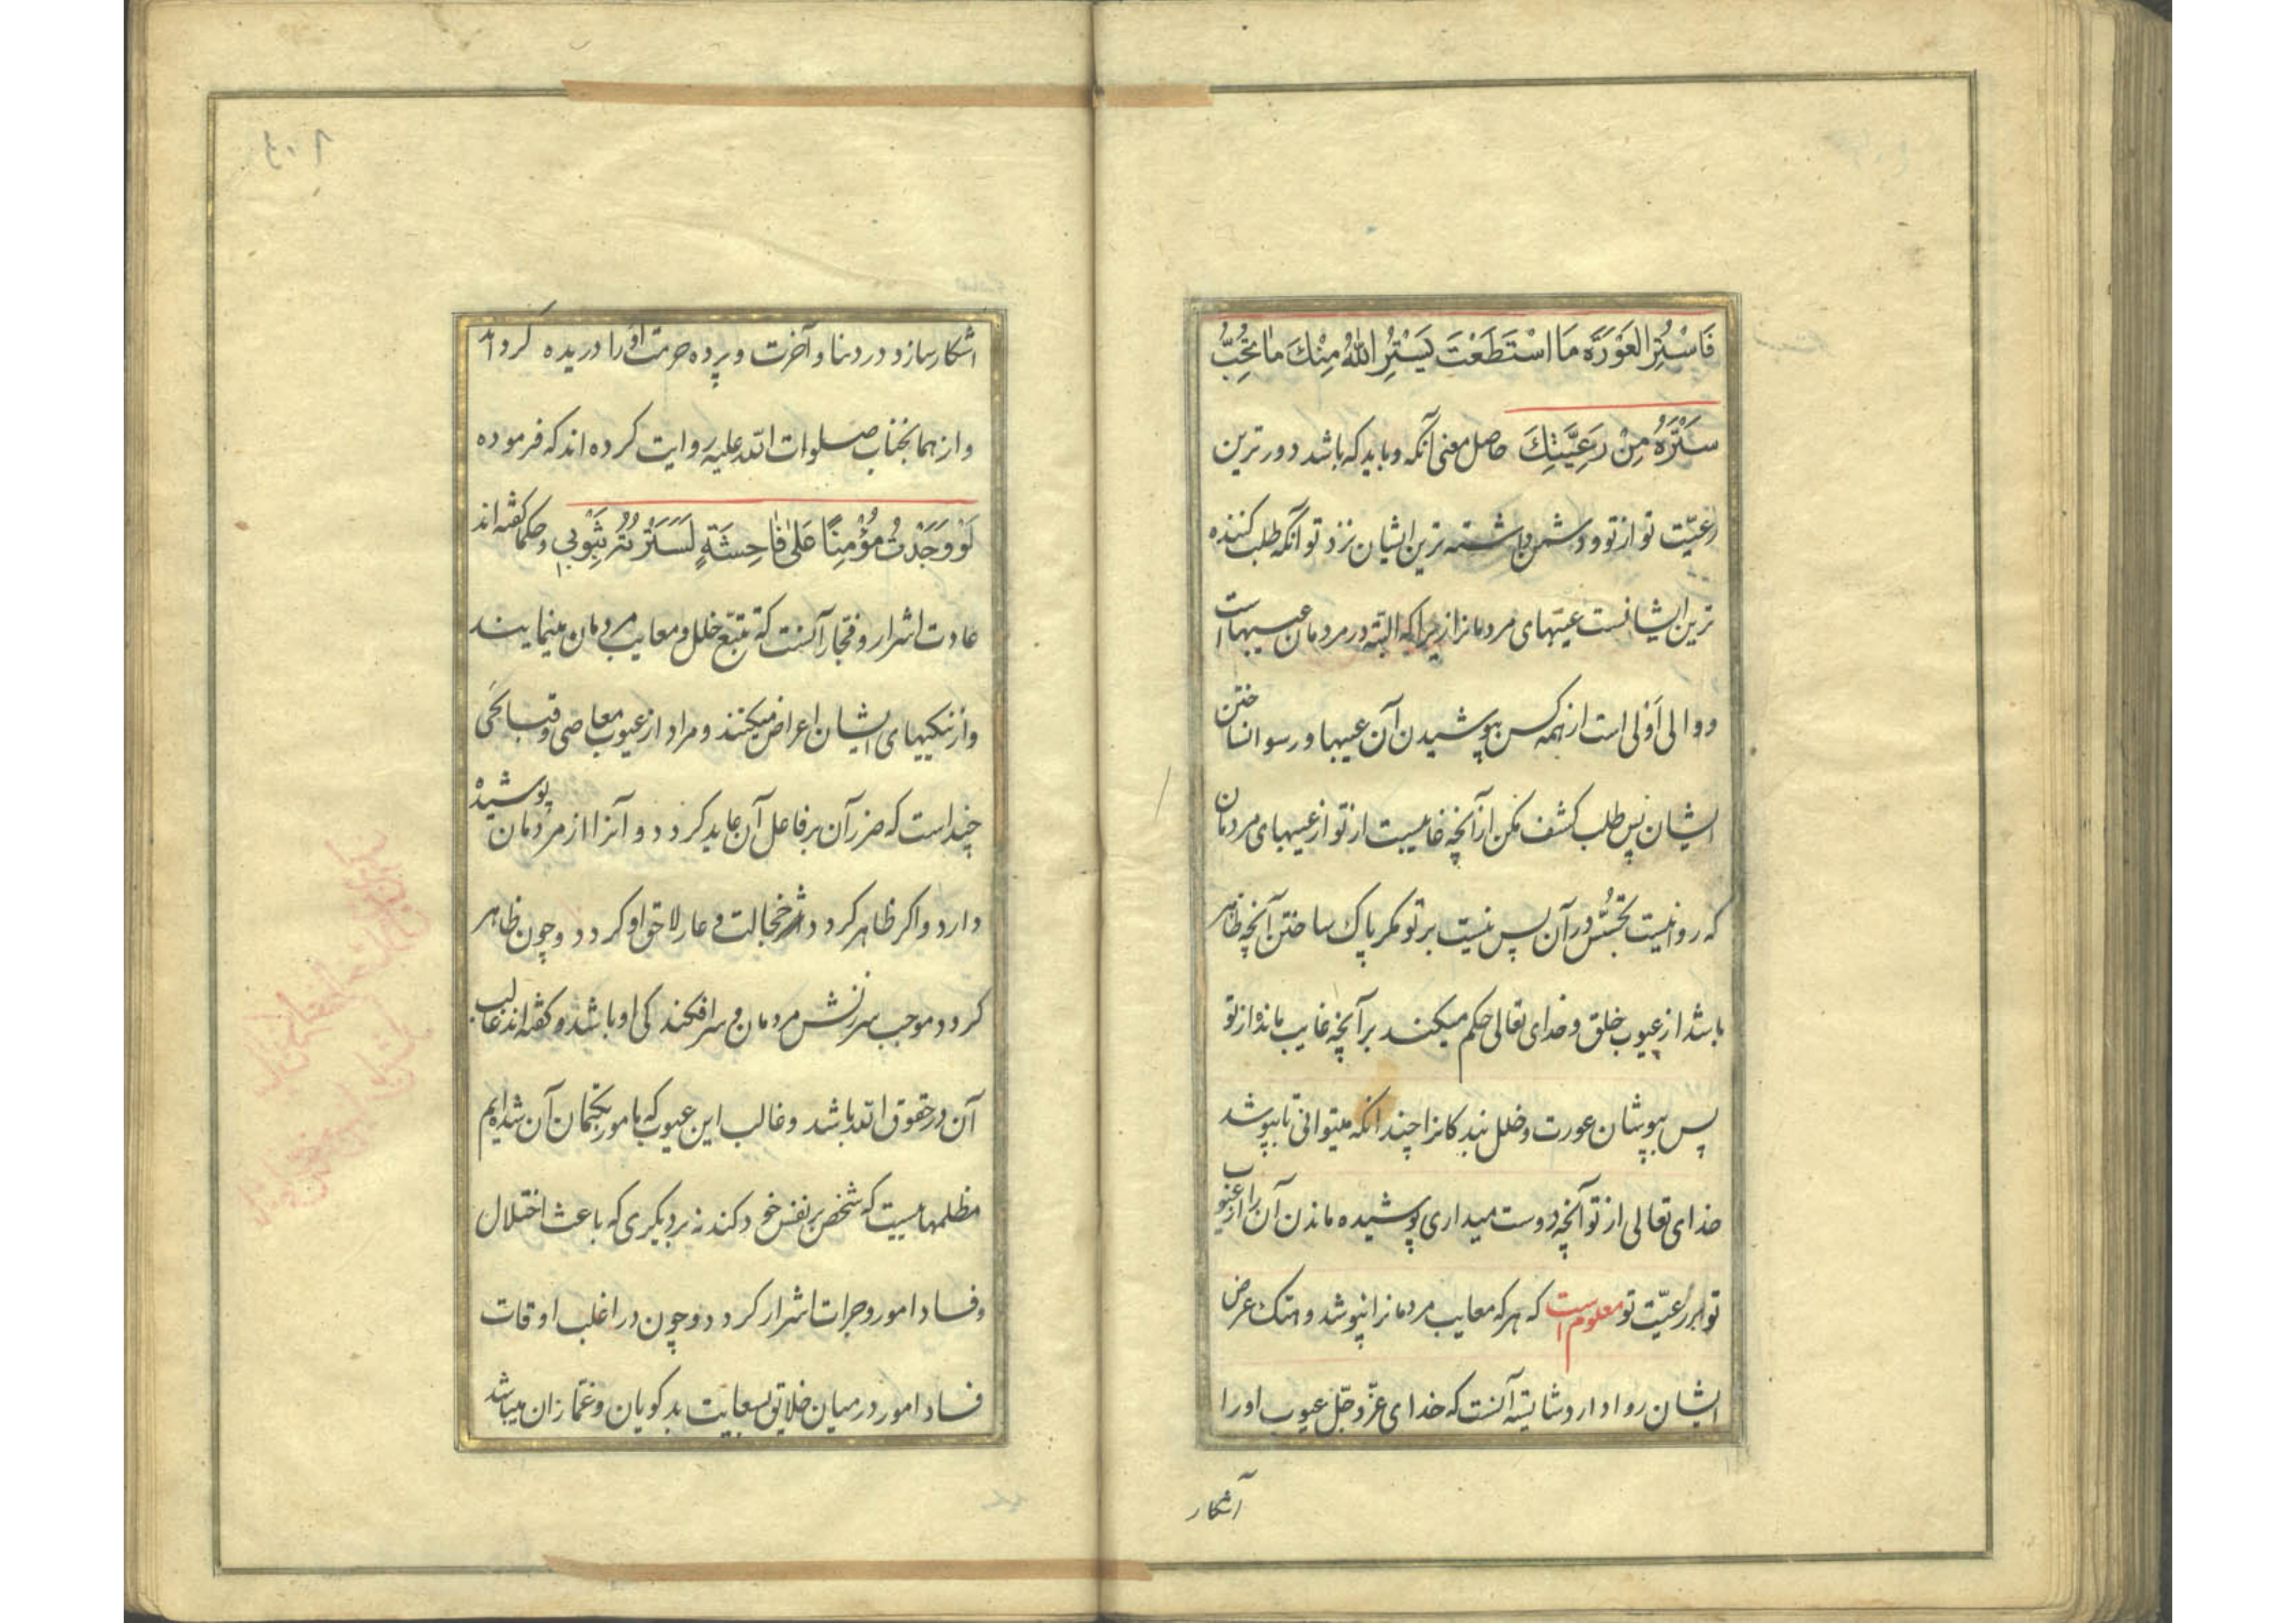 فَاسْتُرِ العَوْرَةَ مَا اسْتَطَعْتَ يَسْتُرِ اللّٰهُ مِنْكَ مَا تُحِبُّ
سَتْرَهُ مِنْ رَعِيَّتِكَ حاصل معنی آنکه و باید که باشد دورترین
رعیّت تو از تو و دشمن داشته ترین ایشان نزد تو آنکه طلب کننده
ترین ایشانست عیبهای مردمانرا زیرا که البته در مردمان عیبهاست
و والی اَوْلی است از همه کس بپوشیدن آن عیبها و رسوا نساختن
ایشان پس طلب کشف مکن از آنچه غایبست از تو از عیبهای مردمان
که روا نیست تجسّس در آن پس نیست بر تو مکر پاک ساختن آنچه ظاهر
باشد از عیوب خلق و خدای تعالی حکم میکند بر آنچه غایب مانده از تو
پس بپوشان عورت و خلل بندکانرا چندانکه میتوانی تا بپوشد
خدای تعالی از تو آنچه دوست میداری پوشیده ماندن آن را از عیوب
تو بر رعیّت تو معلوم است که هر که معایب مردمانرا نپوشد و هتک عرض
ایشان روا دارد شایسته آنست که خدای عزّ و جلّ عیوب او را
آشکار
اشکار سازد در دنیا و آخرت و پرده حرمت او را دریده کرداند
و از همانجناب صلوات الله علیه روایت کرده اند که فرموده
لَوْ وَجَدْتُ مُؤْمِنًا عَلىٰ فَاحِشَةٍ لَسَتَرْتُهُ بِثَوْبِي و حکما کفته اند
عادت اشرار و فجّار آنست که تتبّع خلل و معایب مردمان مینمایند
و از نیکیهای ایشان اعراض میکنند و مراد از عیوب معاصی و قبایحی
چند است که ضرر آن بر فاعل آن عاید کردد و آنرا از مردمان پوشیده
دارد و اکر ظاهر کردد اثر خجالت و عار لاحق او کردد و چون ظاهر
کردد موجب سرزنش مردمان و سرافکندکی او باشد و کفته اند غالب
آن در حقوق الله باشد و غالب این عیوب که مامور بکتمان آن شده ایم
مظلمهاییست که شخص بر نفس خود کند نه بر دیکری که باعث اختلال
و فساد امور و جرات اشرار کردد و چون در اغلب اوقات
فساد امور در میان خلایق بسعایت بدکویان و غمّازان میباشد